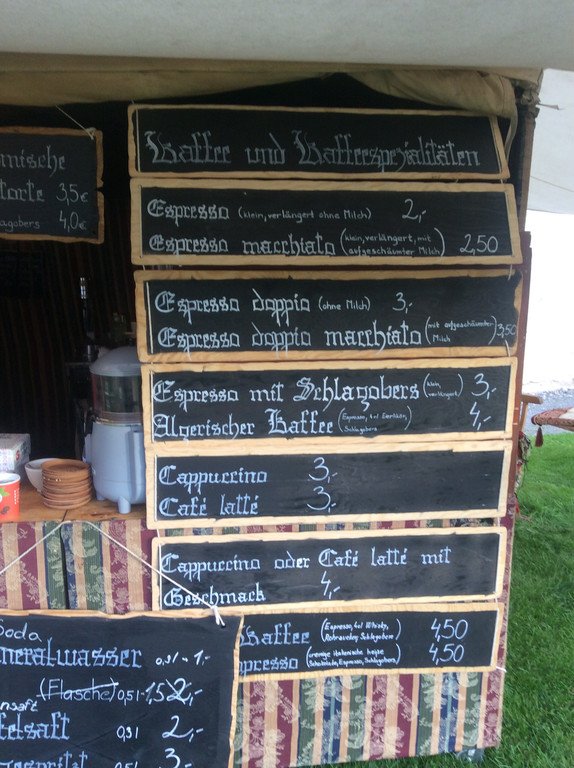 Kaffee und Kaffeespezialitäten
Espresso (klein, verlängert ohne Milch) 2,-
Espresso macchiato (klein, verlängert, mit aufgeschäumter Milch) 2,50
Espresso doppio (ohne Milch) 3,-
Espresso doppio macchiato (mit aufgeschäumter Milch) 3,50
Espresso mit Schlagobers (klein, verlängert) 3,-
Algerischer Kaffee (Espresso, Schlagobers) 4,-
Cappuccino 3,-
Café latté 3,-
Cappuccino oder Café latté mit
Geschmack 4,-
Kaffee (Espresso, 4cl Whisky, Schlagobers) 4,50
presso (cremige italienische heiße Schokolade, Espresso, Schlagobers) 4,50
mische
torte 3,5€
lagobers 4,0€
Soda
neralwasser 0,3l - 1,-
(Flasche) 0,5l - 1,5 2,-
nsaft
felsaft 0,3l 2,-
3,-